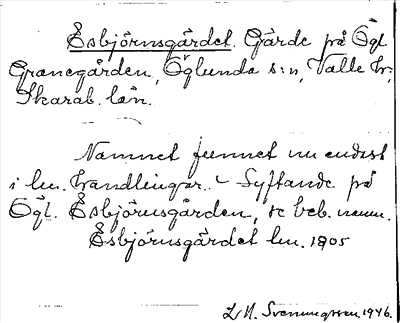 Esbjörnsgärdet. Gärde på Ögl
Granegården, Öglunda s:n, Valle hr,
Skarab. län.
Namnet funnet nu endast
i lm. handlingar. – Syftande på
Ögl. Esbjörnsgården, se beb. namn.
Esbjörnsgärdet lm. 1805
Svenungsson 1946.